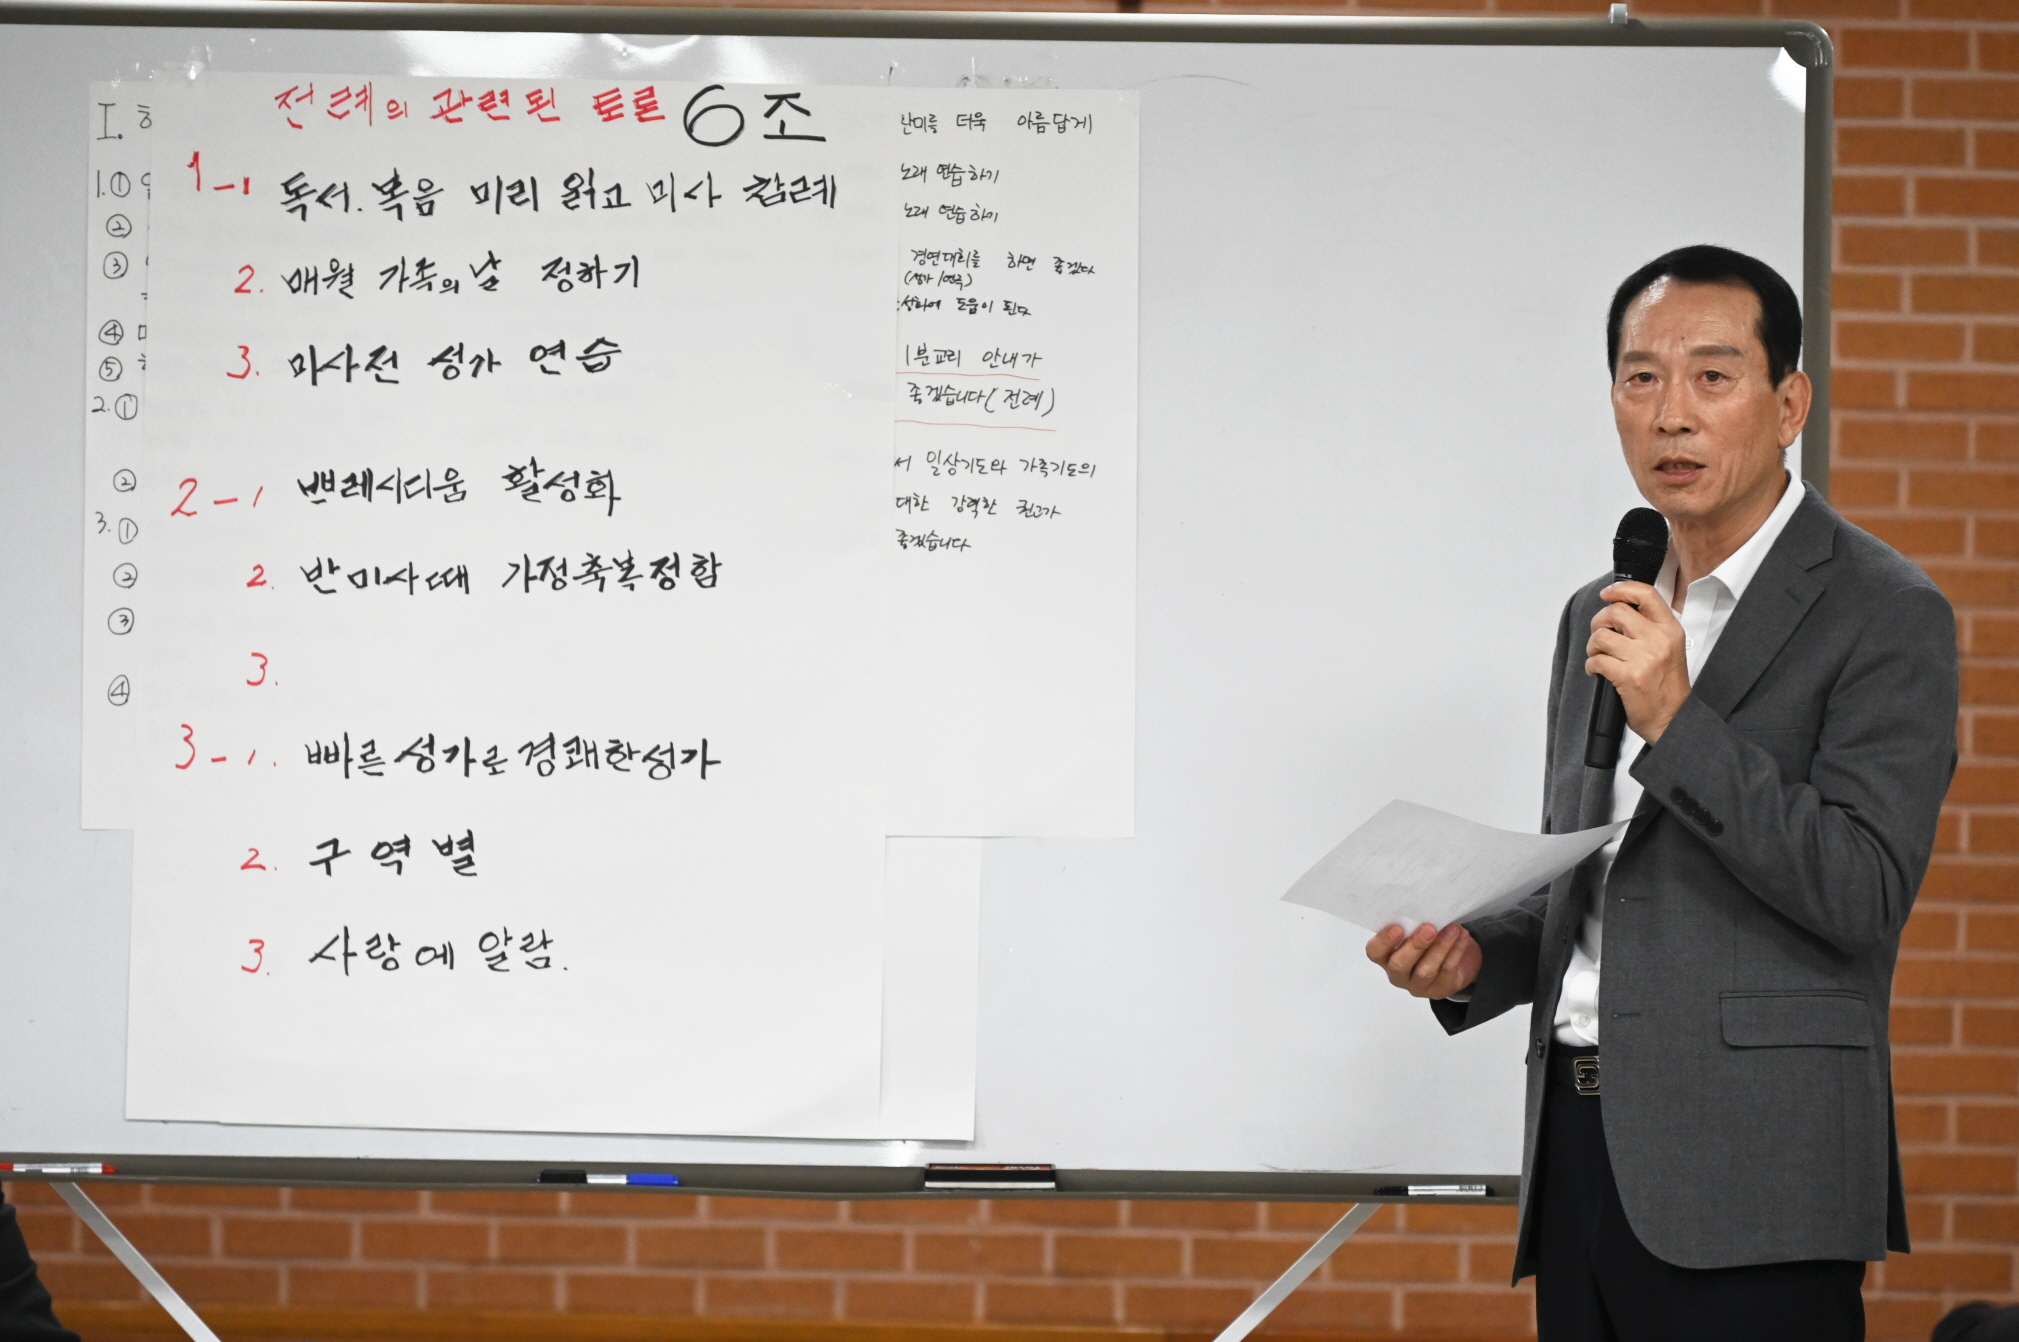 전례의 관련된 토론 6조
1-1 독서. 복음 미리 읽고 미사 참례
2. 매월 가족의 날 정하기
3. 미사전 성가 연습
2-1 쁘레시디움 활성화
2. 반미사때 가정축복정함
3.
3-1. 빠른성가로 경쾌한성가
2. 구역별
3. 사랑에 알람.
I.
1.①
②
③
④
⑤
2.①
②
3.①
②
③
④
더욱 아름답게
노래 연습하기
노래 연습하기
경연대회를 하면 좋겠다
(성가/연주)
도움이 된다
1분교리 안내가
좋겠습니다(전례)
서 일상기도와 가족기도의
대한 강력한 권고가
좋겠습니다